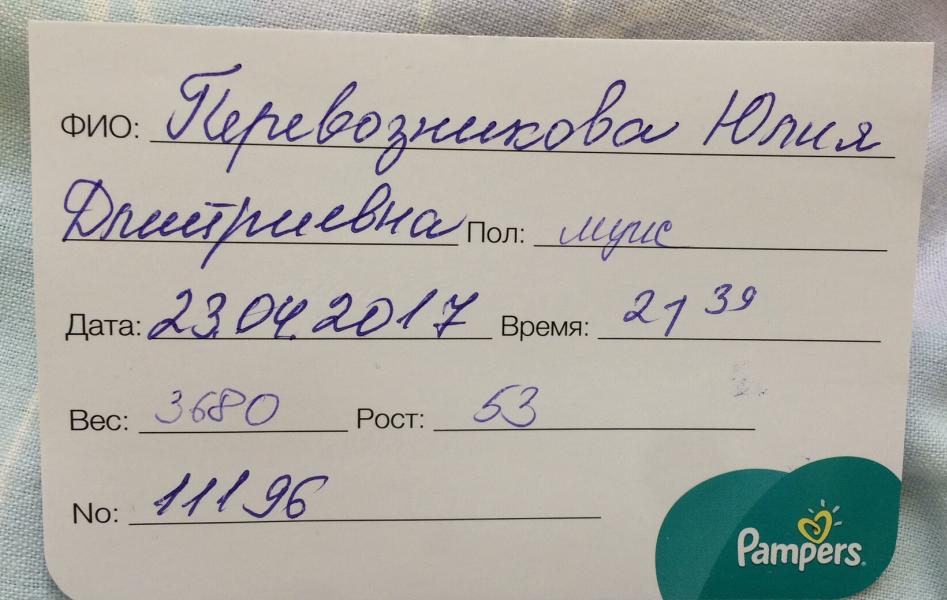 ФИО: Перевозникова Юлия
Дмитриевна Пол: муж
Дата: 23.04.2017 Время: 21 39
Вес: 3680 Рост: 53
No: 11196
Pampers